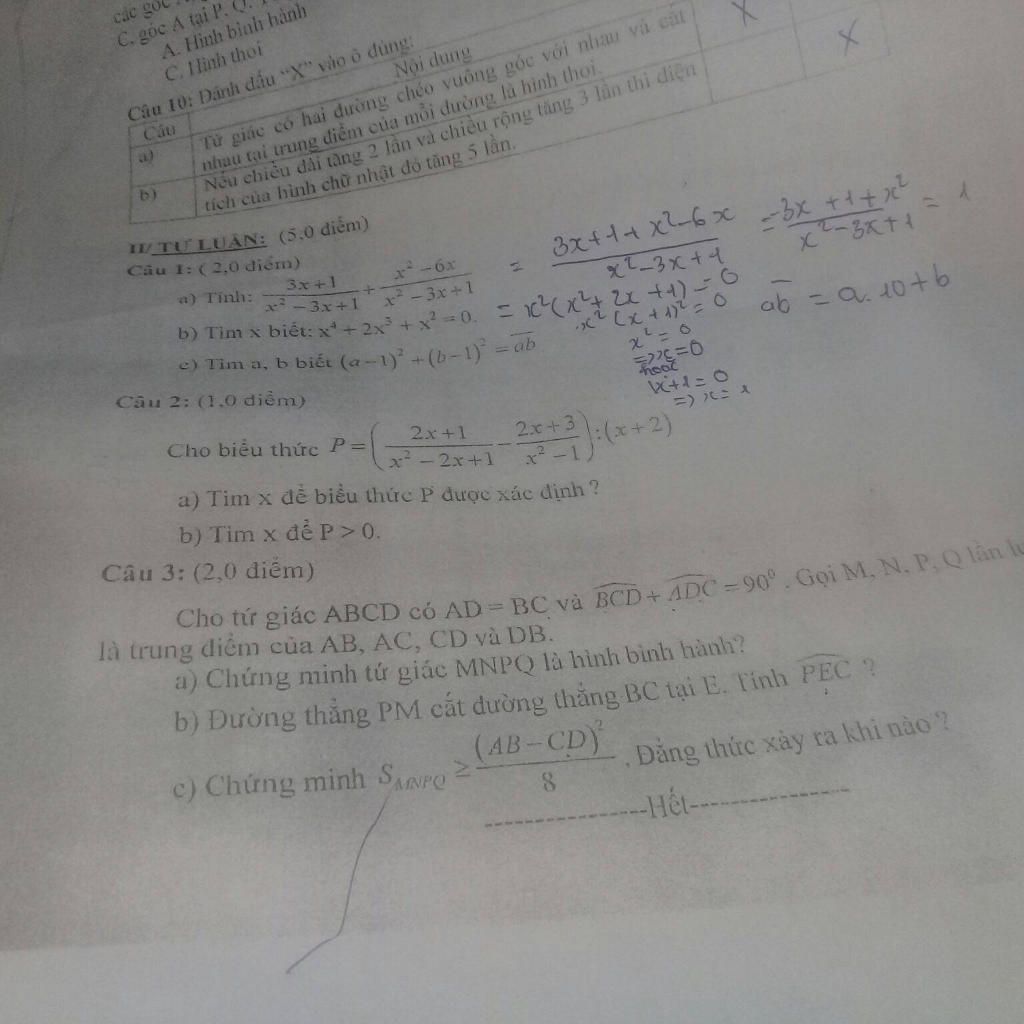 các góc
C, góc A tại P, Q.
A. Hình bình hành
C. Hình thoi
Câu 10: Đánh dấu “X” vào ô đúng:
Câu Nội dung
a) Tứ giác có hai đường chéo vuông góc với nhau và cắt X
nhau tại trung điểm của mỗi đường là hình thoi.
b) Nếu chiều dài tăng 2 lần và chiều rộng tăng 3 lần thì diện X
tích của hình chữ nhật đó tăng 5 lần.
II/ TỰ LUẬN: (5,0 điểm)
Câu 1: ( 2,0 điểm)
a) Tính: \frac{3x+1}{x^2-3x+1} + \frac{x^2-6x}{x^2-3x+1} = \frac{3x+1+x^2-6x}{x^2-3x+1} = \frac{-3x+1+x^2}{x^2-3x+1} = 1
b) Tìm x biết: x^4 + 2x^3 + x^2 = 0. = x^2(x^2+2x+1) = 0
x^2(x+1)^2 = 0
x^2 = 0
=> x = 0
hoặc
x+1 = 0
=> x = 1
c) Tìm a, b biết (a-1)^2 + (b-1)^2 = \overline{ab}
\overline{ab} = a.10+b
Câu 2: (1,0 điểm)
Cho biểu thức P = \left( \frac{2x+1}{x^2-2x+1} - \frac{2x+3}{x^2-1} \right) : (x+2)
a) Tìm x để biểu thức P được xác định ?
b) Tìm x để P > 0.
Câu 3: (2,0 điểm)
Cho tứ giác ABCD có AD = BC và \widehat{BCD} + \widehat{ADC} = 90^0. Gọi M, N, P, Q lần
là trung điểm của AB, AC, CD và DB.
a) Chứng minh tứ giác MNPQ là hình bình hành?
b) Đường thẳng PM cắt đường thẳng BC tại E. Tính \widehat{PEC} ?
c) Chứng minh S_{MNPQ} ≥ \frac{(AB-CD)^2}{8}. Đẳng thức xảy ra khi nào ?
-----------------Hết-----------------